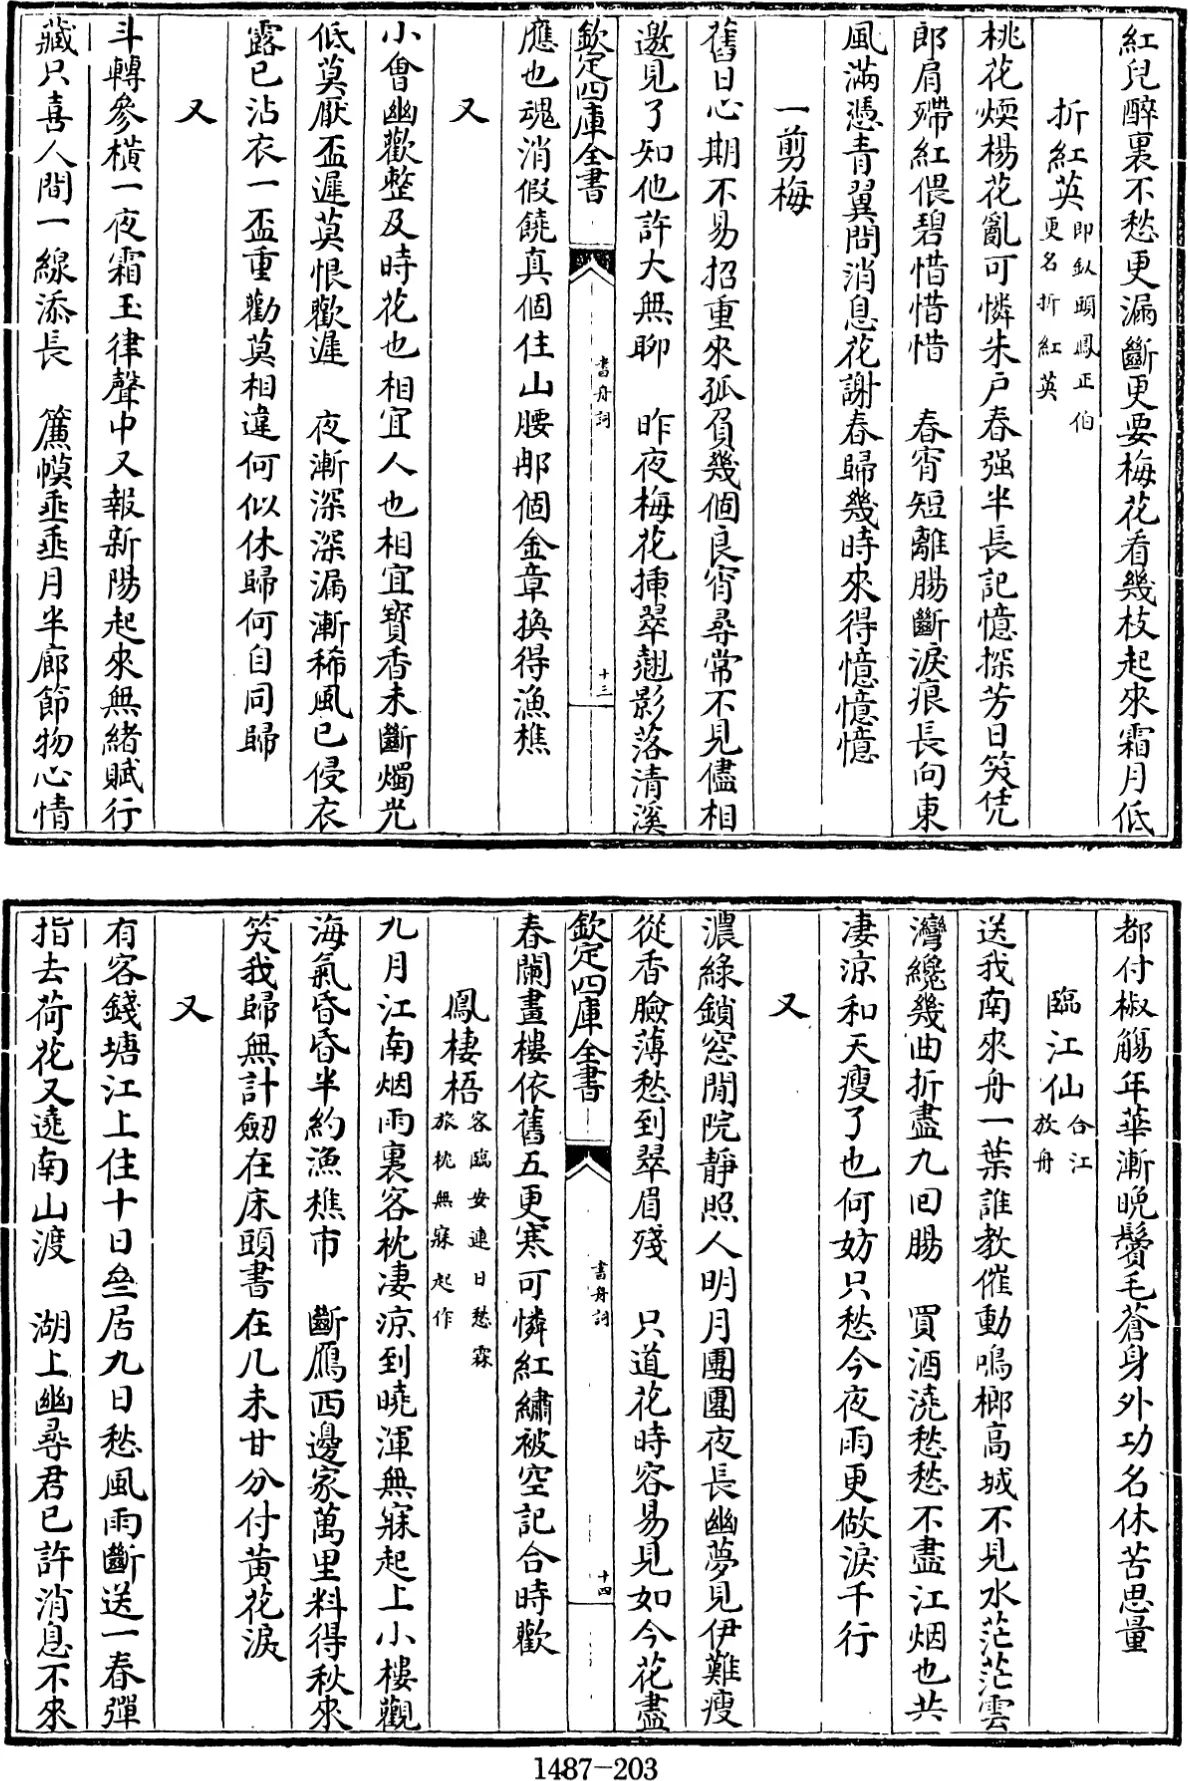 紅兒醉裏不愁更漏斷更要梅花看幾枝起來霜月低
折紅英即釵頭鳳正伯更名折紅英
桃花煖楊花亂可憐朱戶春强半長記憶探芳日笑凭
郎肩殢紅偎碧惜惜惜　春宵短離腸斷淚痕長向東
風滿憑青翼問消息花謝春歸幾時來得憶憶憶
一剪梅
舊日心期不易招重來孤負幾個良宵尋常不見儘相
邀見了知他許大無聊　昨夜梅花揷翠翹影落清溪
欽定四庫全書　書舟詞　十三
應也魂消假饒真個住山腰那個金章換得漁樵
又
小會幽歡整及時花也相宜人也相宜寳香未斷燭光
低莫厭盃遲莫恨歡遲　夜漸深深漏漸稀風已侵衣
露已沾衣一盃重勸莫相違何似休歸何自同歸
又
斗轉參横一夜霜玉律聲中又報新陽起來無緒賦行
藏只喜人間一線添長　簾幙垂垂月半廊節物心情
都付椒觴年華漸晚鬢毛蒼身外功名休苦思量
臨江仙合江放舟
送我南來舟一葉誰教催動鳴榔高城不見水茫茫雲
灣纔幾曲折盡九回腸　買酒澆愁愁不盡江烟也共
凄涼和天瘦了也何妨只愁今夜雨更做淚千行
又
濃綠鎖窓閒院靜照人明月團團夜長幽夢見伊難瘦
從香臉薄愁到翠眉殘　只道花時容易見如今花盡
欽定四庫全書　書舟詞　十四
春闌畫樓依舊五更寒可憐紅繡被空記合時歡
鳳棲梧客臨安連日愁霖旅枕無寐起作
九月江南烟雨裏客枕凄涼到曉渾無寐起上小樓觀
海氣昏昏半約漁樵市　斷鴈西邊家萬里料得秋來
笑我歸無計劒在床頭書在几未甘分付黄花淚
又
有客錢塘江上住十日叄居九日愁風雨斷送一春彈
指去荷花又遶南山渡　湖上幽尋君已許消息不來
1487-203